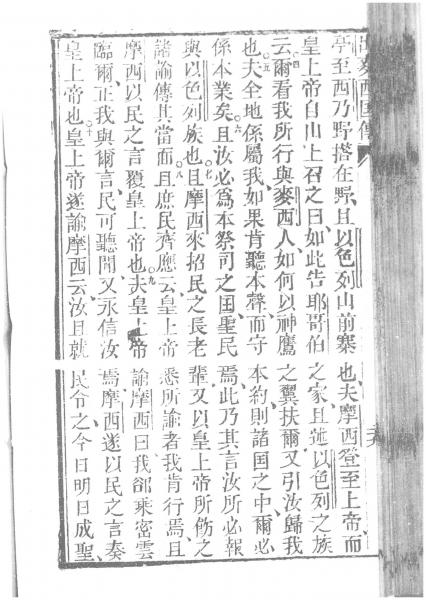 亭至西乃野搭在野、且以色列山前寨也、夫摩西登至上帝而
皇上帝自山上召之曰、如此告耶哥伯之家、且述以色列之族
云、四爾看我所行與麥西人如何以神鷹之翼扶爾、又引汝歸我
也、五夫全地係屬我、如果肯聽本聲、而守本約、則諸国之中、爾必
係本業矣、六且汝必爲本祭司之国、聖民焉、此乃其言汝所必報
與以色列族也、七且摩西來招民之長老輩、又以皇上帝所飭之
諸諭傳其當面、八且庶民齊應云、皇上帝悉所諭者、我肯行焉、且
摩西以民之言覆皇上帝也、九夫皇上帝諭摩西曰、我卻乘密雲
臨爾、正我與爾言、民可聽聞、又永信汝焉、摩西遂以民之言奏
皇上帝也、十皇上帝遂諭摩西云、汝且就民令之、今日明日成聖、